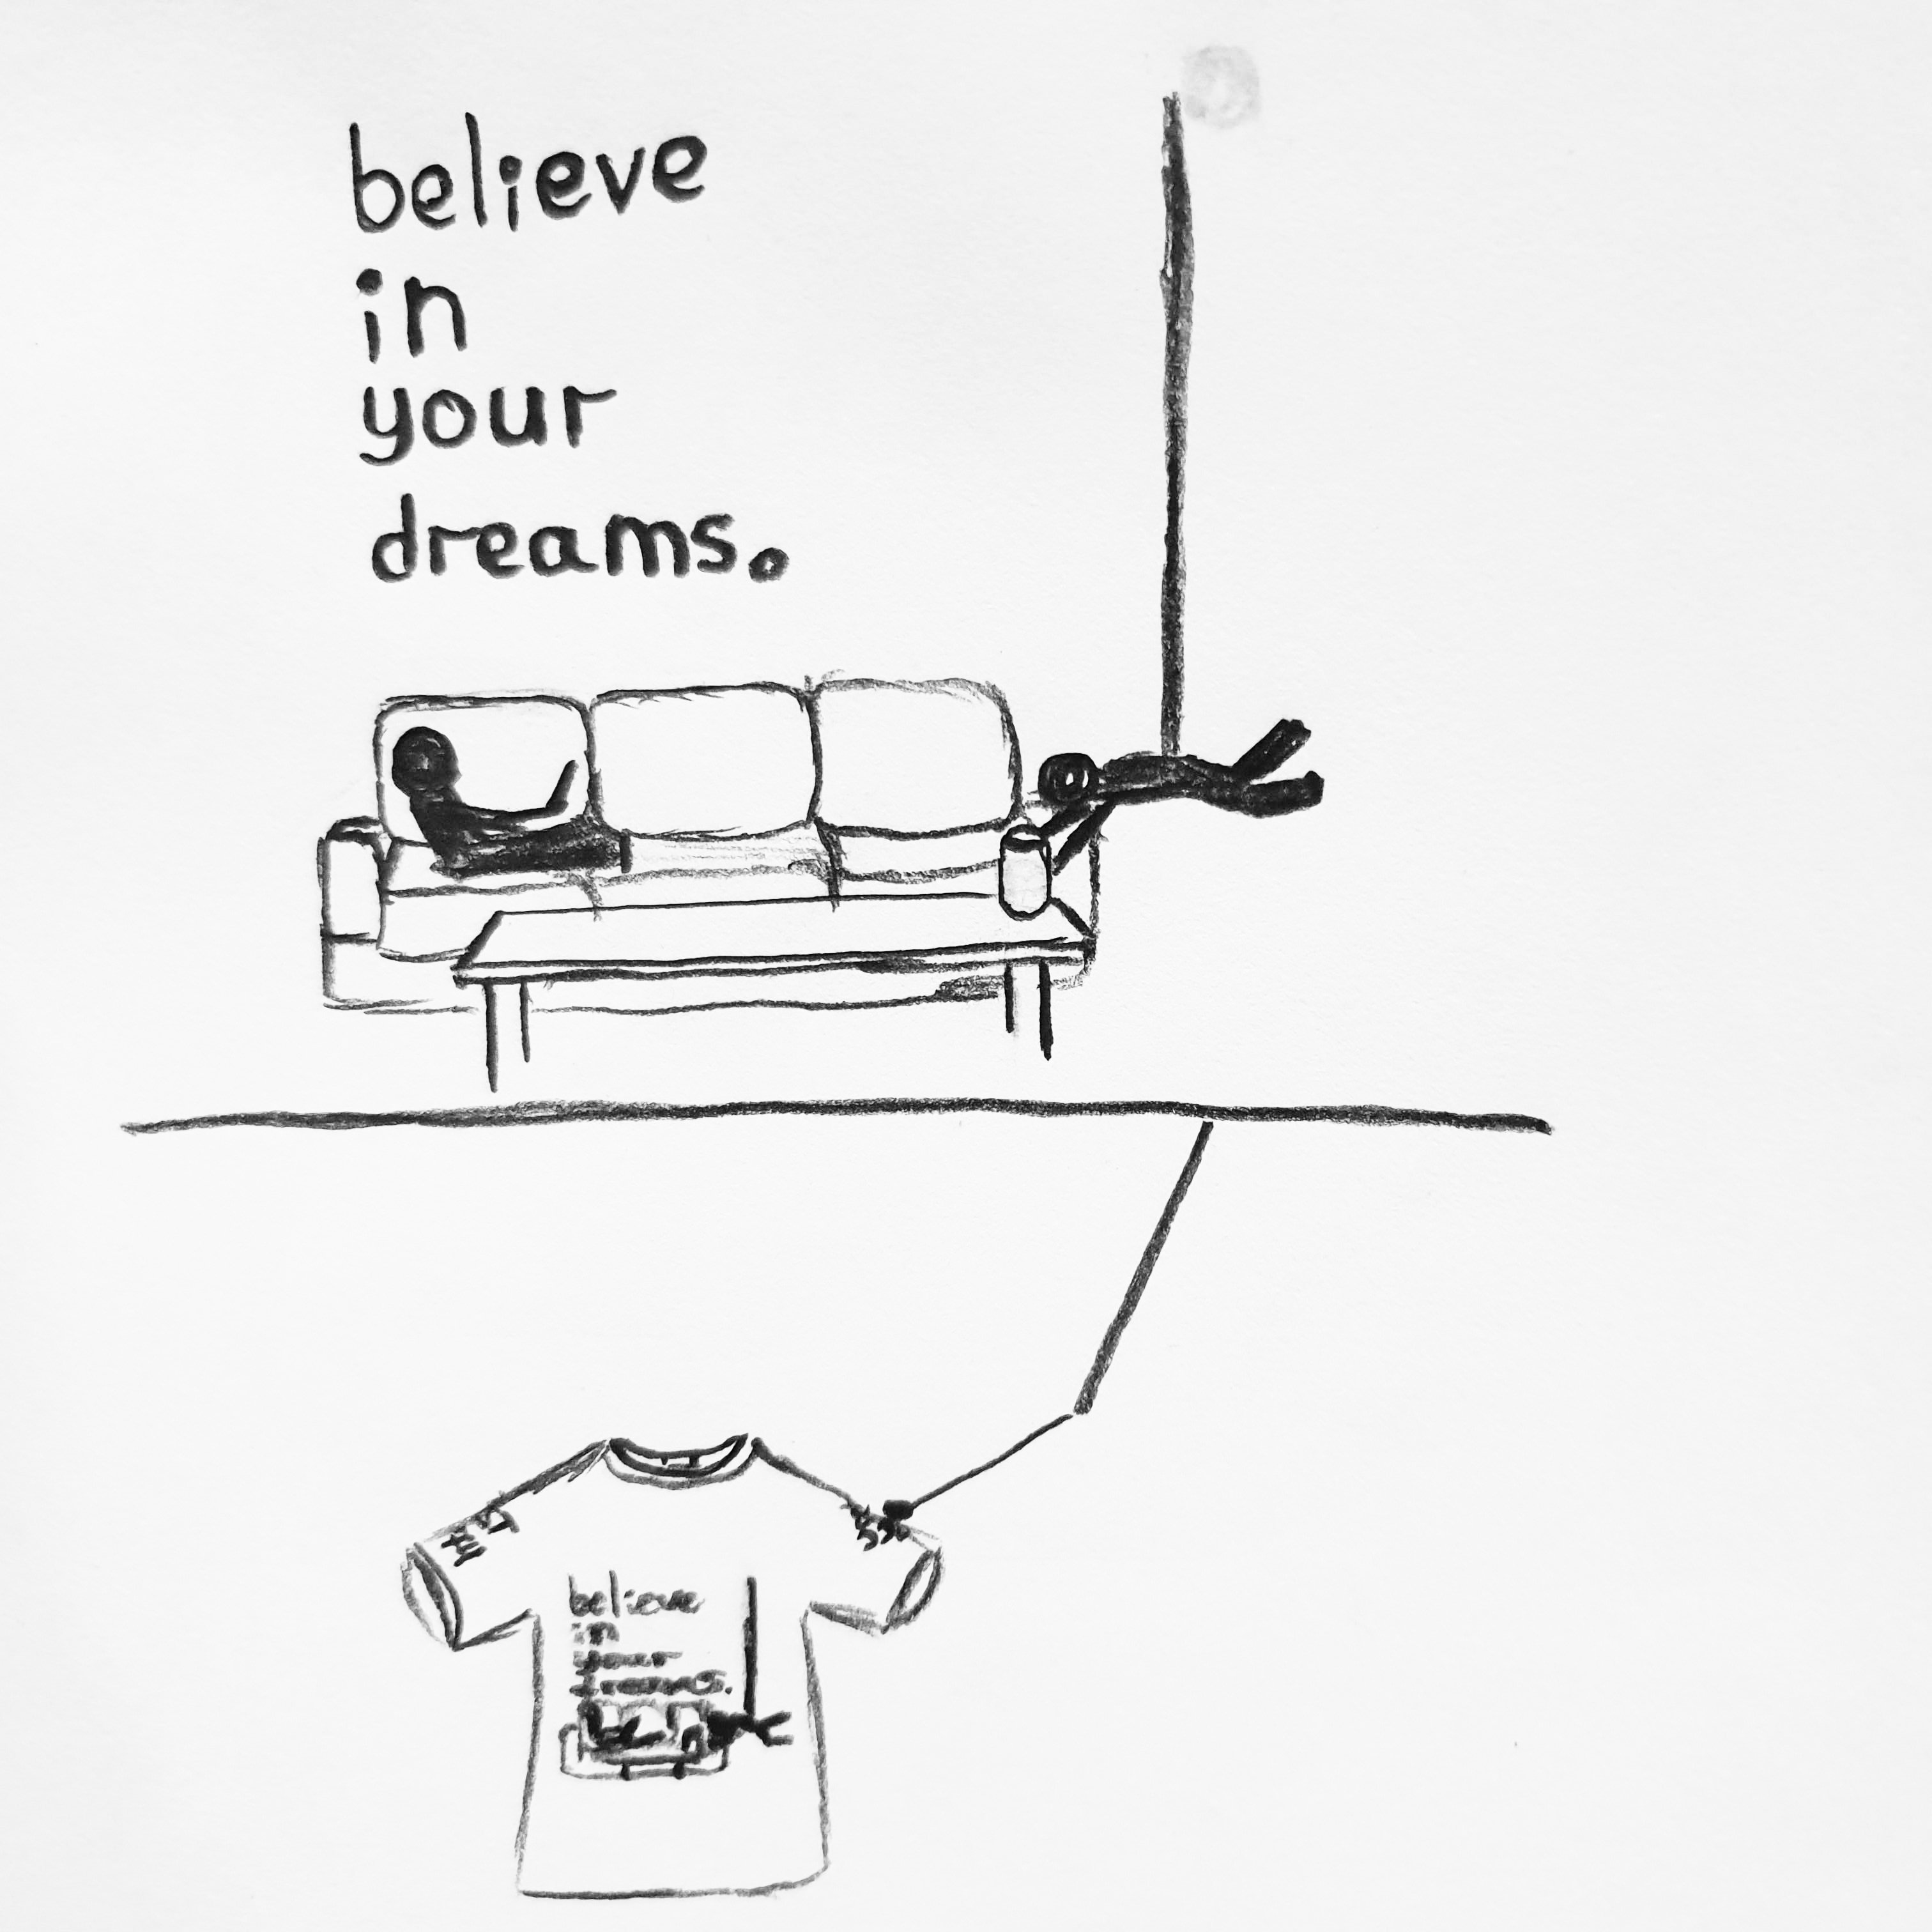 believe
in
your
dreams.
believe
in
your
dreams.